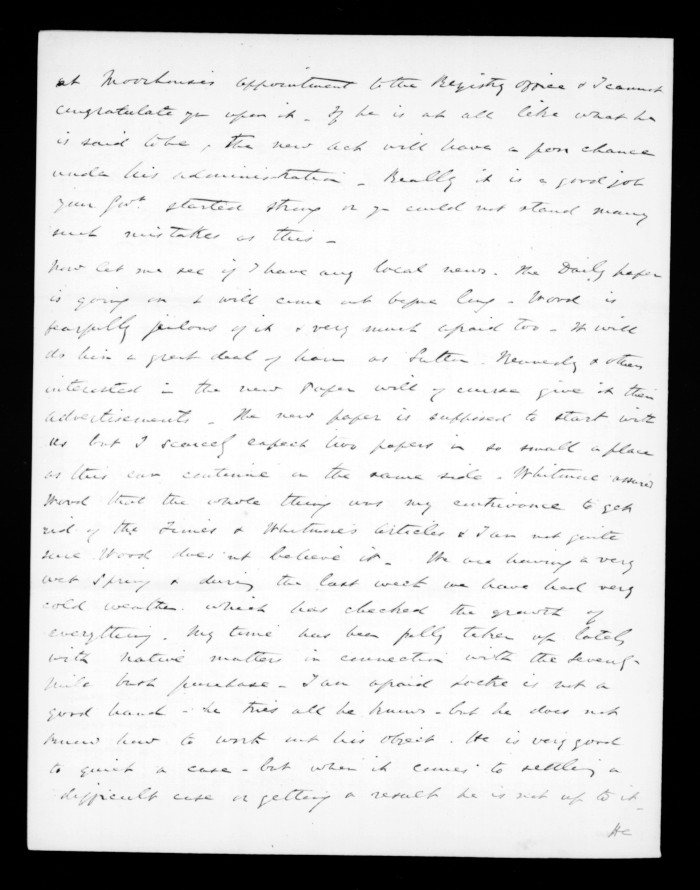 at Moorhouse's appointment to the Registry office & I cannot
congratulate you upon it. If he is at all like what he
is said to be, the new act will have a poor chance
under his administration - Really it is a good job
your Govt started strong or you could not stand many
such mistakes as this -
Now let me see if I have any local news. The Daily paper
is going on & will come out before long - Wood is
fearfully jealous of it & very much afraid too - It will
do him a great deal of harm as Sutton, Kennedy & others
interested in the new Paper will of course give it their
advertisements - The new paper is supposed to start with
us but I scarcely expect two papers in so small a place
as this can continue on the same side - Whitmore assured
Wood that the whole thing was my contrivance to get
rid of the Times & Whitmore's articles & I am not quite
sure Wood does nt believe it - We are having a very
wet Spring & during the last week we have had very
cold weather which has checked the growth of
everything. My time has been fully taken up lately
with Native matters in connection with the Seventy-
mile bush purchase - I am afraid Locke is not a
good hand - he tries all he knows - but he does not
know how to work out his object. He is very good
to quiet a case - but when it comes to settling a
difficult case or getting a result he is not up to it -
He